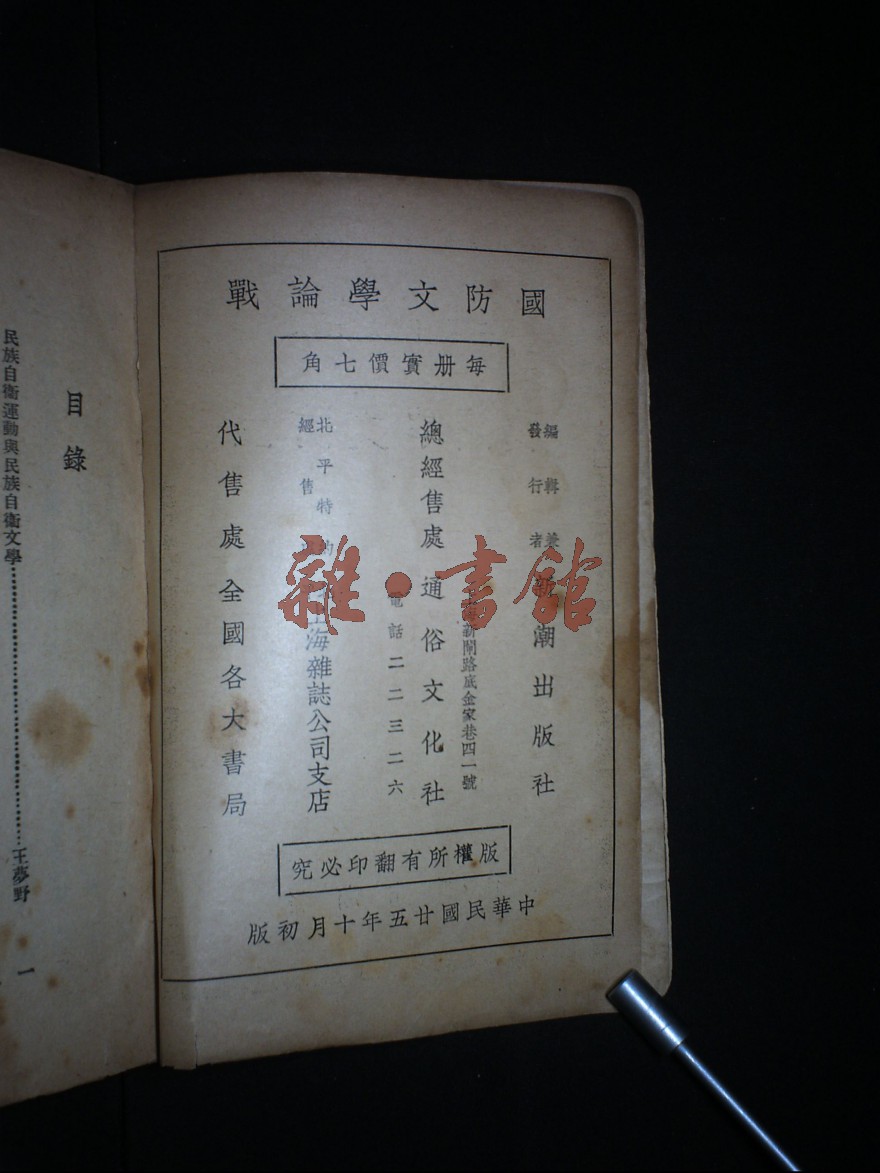 國防文學論戰
每册實價七角
編輯兼
發行者
新潮出版社
新閘路底金家巷四一號
總經售處 通俗文化社
電話二二三二六
北平特約
經售
上海雜誌公司支店
代售處 全國各大書局
版權所有翻印必究
中華民國廿五年十月初版
目錄
民族自衞運動與民族自衞文學……王夢野 一
雜·書館